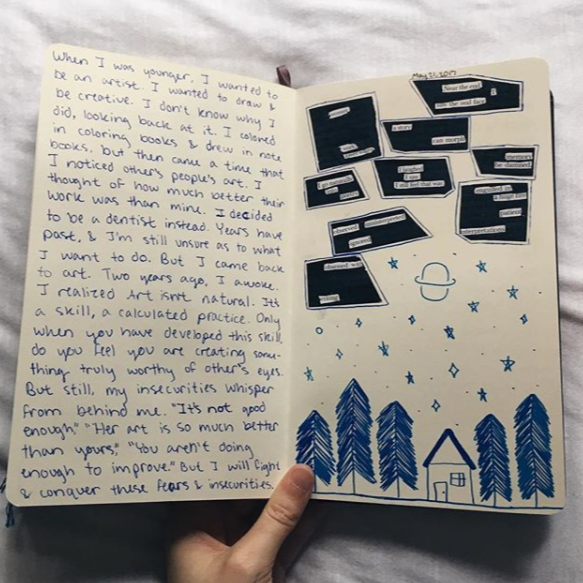 When I was younger, I wanted to
be an artist. I wanted to draw &
be creative. I don't know why I
did, looking back at it. I colored
in coloring books & drew in note
books. but then came a time that
I noticed other's people's art. I
thought of how much better their
work was than mine. I decided
to be a dentist instead. Years have
past, & I'm still unsure as to what
I want to do. But I came back
to art. Two years ago, I awoke.
I realized Art isn't natural. It's
a skill, a calculated practice. Only
when you have developed this skill
do you feel you are creating some-
thing truly worthy of other's eyes.
But still, my insecurities whisper
from behind me. "It's not good
enough," "Her art is so much better
than yours," "You aren't doing
enough to improve." But I will fight
& conquer these fears & insecurities.
May 31, 2017
Near the end
saw the real face
a story
can morph
memory
be distilled
I laughed
I saw
I still feel that way
engulfed in
a huge fire
patient
interpretations
observed misinterpreted
ignored
obsessed with